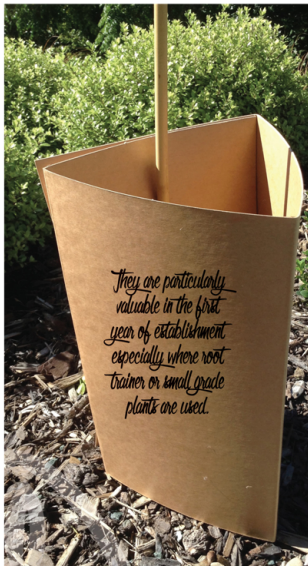 They are particularly
valuable in the first
year of establishment
especially where root
trainer or small grade
plants are used.